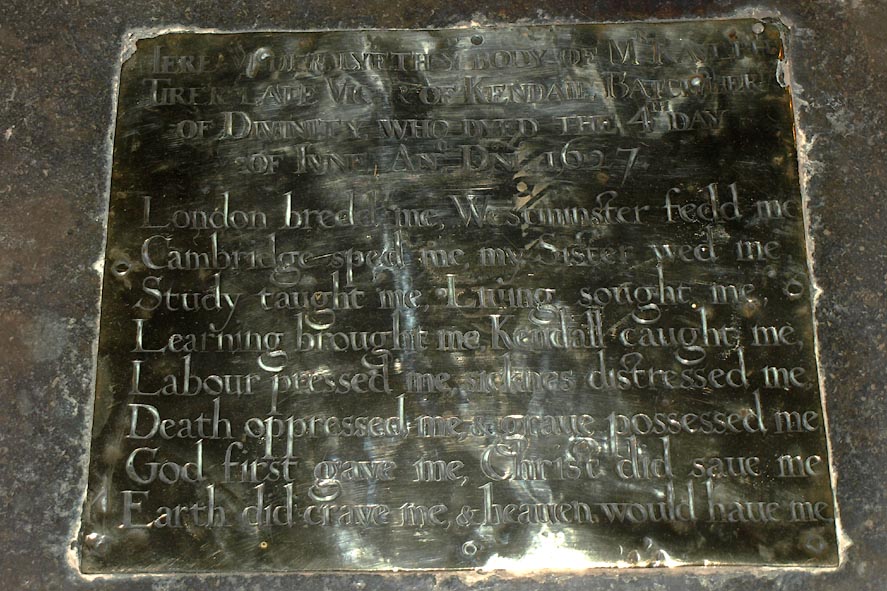 HERE VNDER LYETH Yᵉ BODY OF Mʳ RAVLPH
TIRER LATE VICAR OF KENDALL BATCHLER
OF DIVINITY, WHO DYED THE 4ᵀᴴ DAY
OF IVNE, Aₙᵒ DNⁱ 1627
London bredd me, Westminster fedd me
Cambridge sped me, my Sister wed me
Study taught me, Liuing sought me,
Learning brought me, Kendall caught me,
Labour pressed me, sicknes distressed me
Death oppressed me, & graue possessed me
God first gave me, Christ did saue me
Earth did crave me, & heauen would haue me